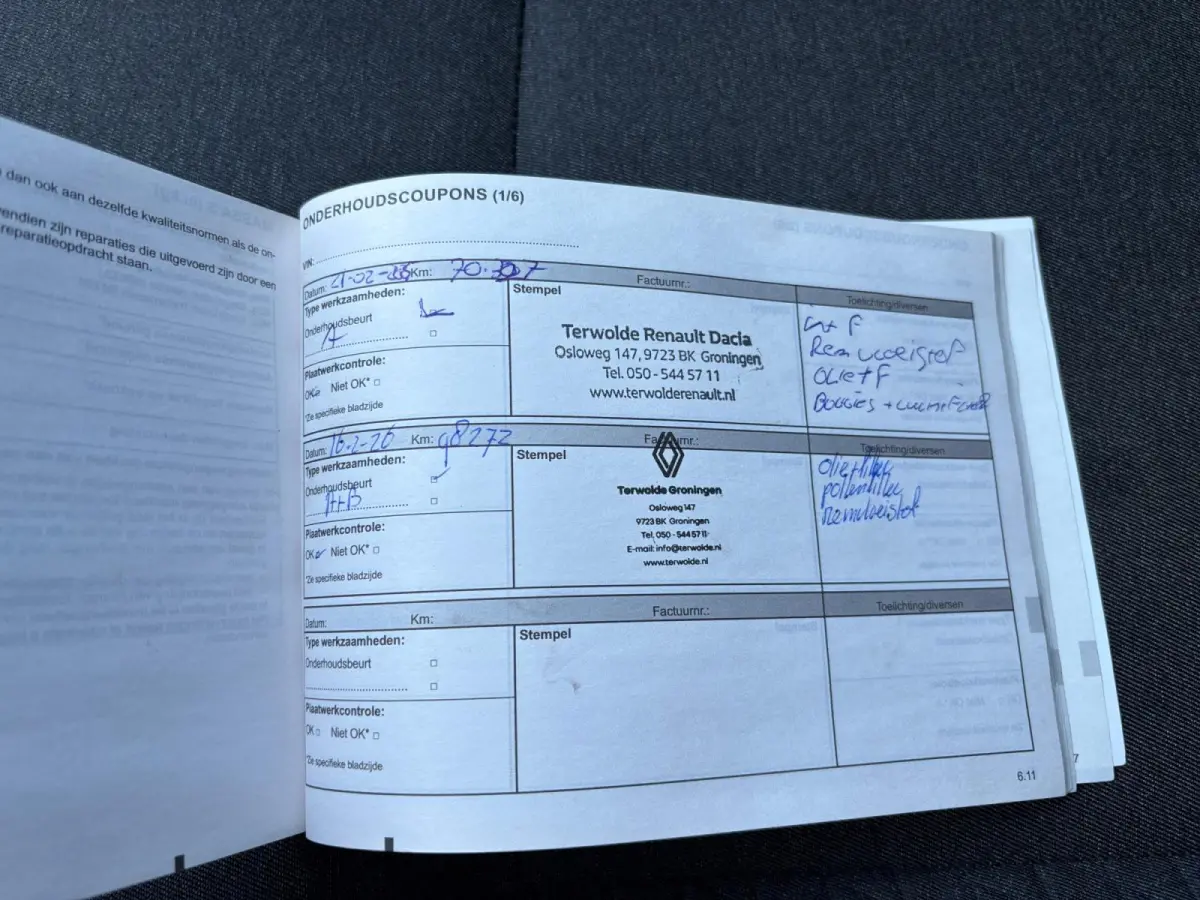 dan ook aan dezelfde kwaliteitsnormen als de on-
endien zijn reparaties die uitgevoerd zijn door een
reparatieopdracht staan.
ONDERHOUDSCOUPONS (1/6)
VIN:
Datum: 21-02- Km: 70. Factuurnr.: Toelichting/diversen
Type werkzaamheden:
Onderhoudsbeurt
A
Plaatwerkcontrole:
OK Niet OK*
*Zie specifieke bladzijde
Stempel
Terwolde Renault Dacia
Osloweg 147, 9723 BK Groningen
Tel. 050 - 544 57 11
www.terwolderenault.nl
Int F
Remvloeistof
Olie+F
Bougies + Luchtfilter
Datum: 16-2-26 Km: 98272 Factuurnr.: Toelichting/diversen
Type werkzaamheden:
Onderhoudsbeurt
A+B
Plaatwerkcontrole:
OK Niet OK*
*Zie specifieke bladzijde
Stempel
Terwolde Groningen
Osloweg 147
9723 BK Groningen
Tel. 050 - 544 57 11
E-mail: info@terwolde.nl
www.terwolde.nl
olie+filter
pollenfilter
Remvloeistof
Datum: Km: Factuurnr.: Toelichting/diversen
Type werkzaamheden:
Onderhoudsbeurt
Plaatwerkcontrole:
OK Niet OK*
*Zie specifieke bladzijde
Stempel
6.11
7